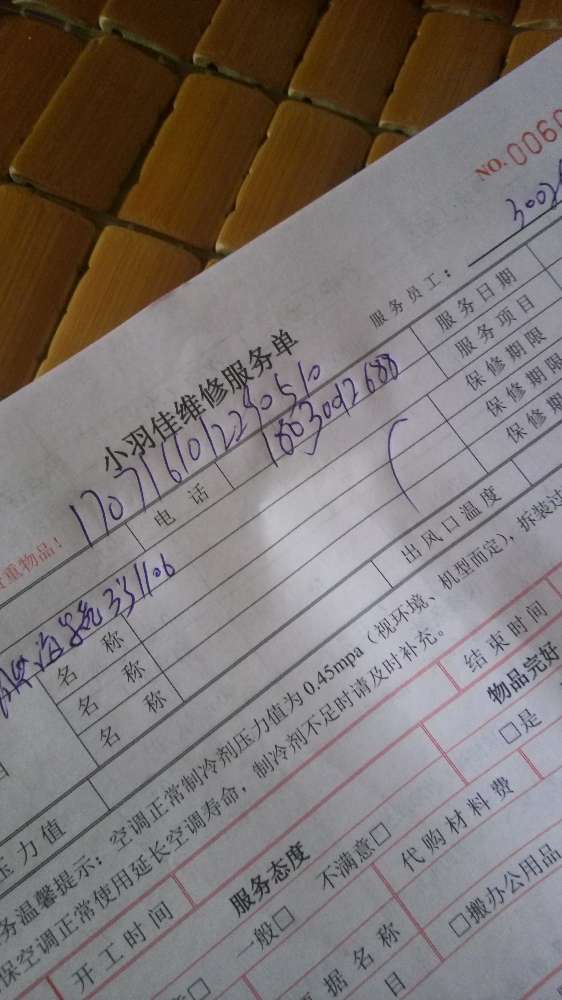 NO.0060
服务员工：3002
小羽佳维修服务单
服务日期
服务项目
1707161012240510
重物品！
电话 18030092688
保修期限
保修期限
保修期
331106
名称
名称
名称
出风口温度
压力值
务温馨提示：空调正常制冷剂压力值为0.45mpa（视环境、机型而定），拆装过
保空调正常使用延长空调寿命，制冷剂不足时请及时补充。
开工时间
结束时间
服务态度
物品完好
一般□ 不满意□
□是
代购材料费
据名称
□搬办公用品
目